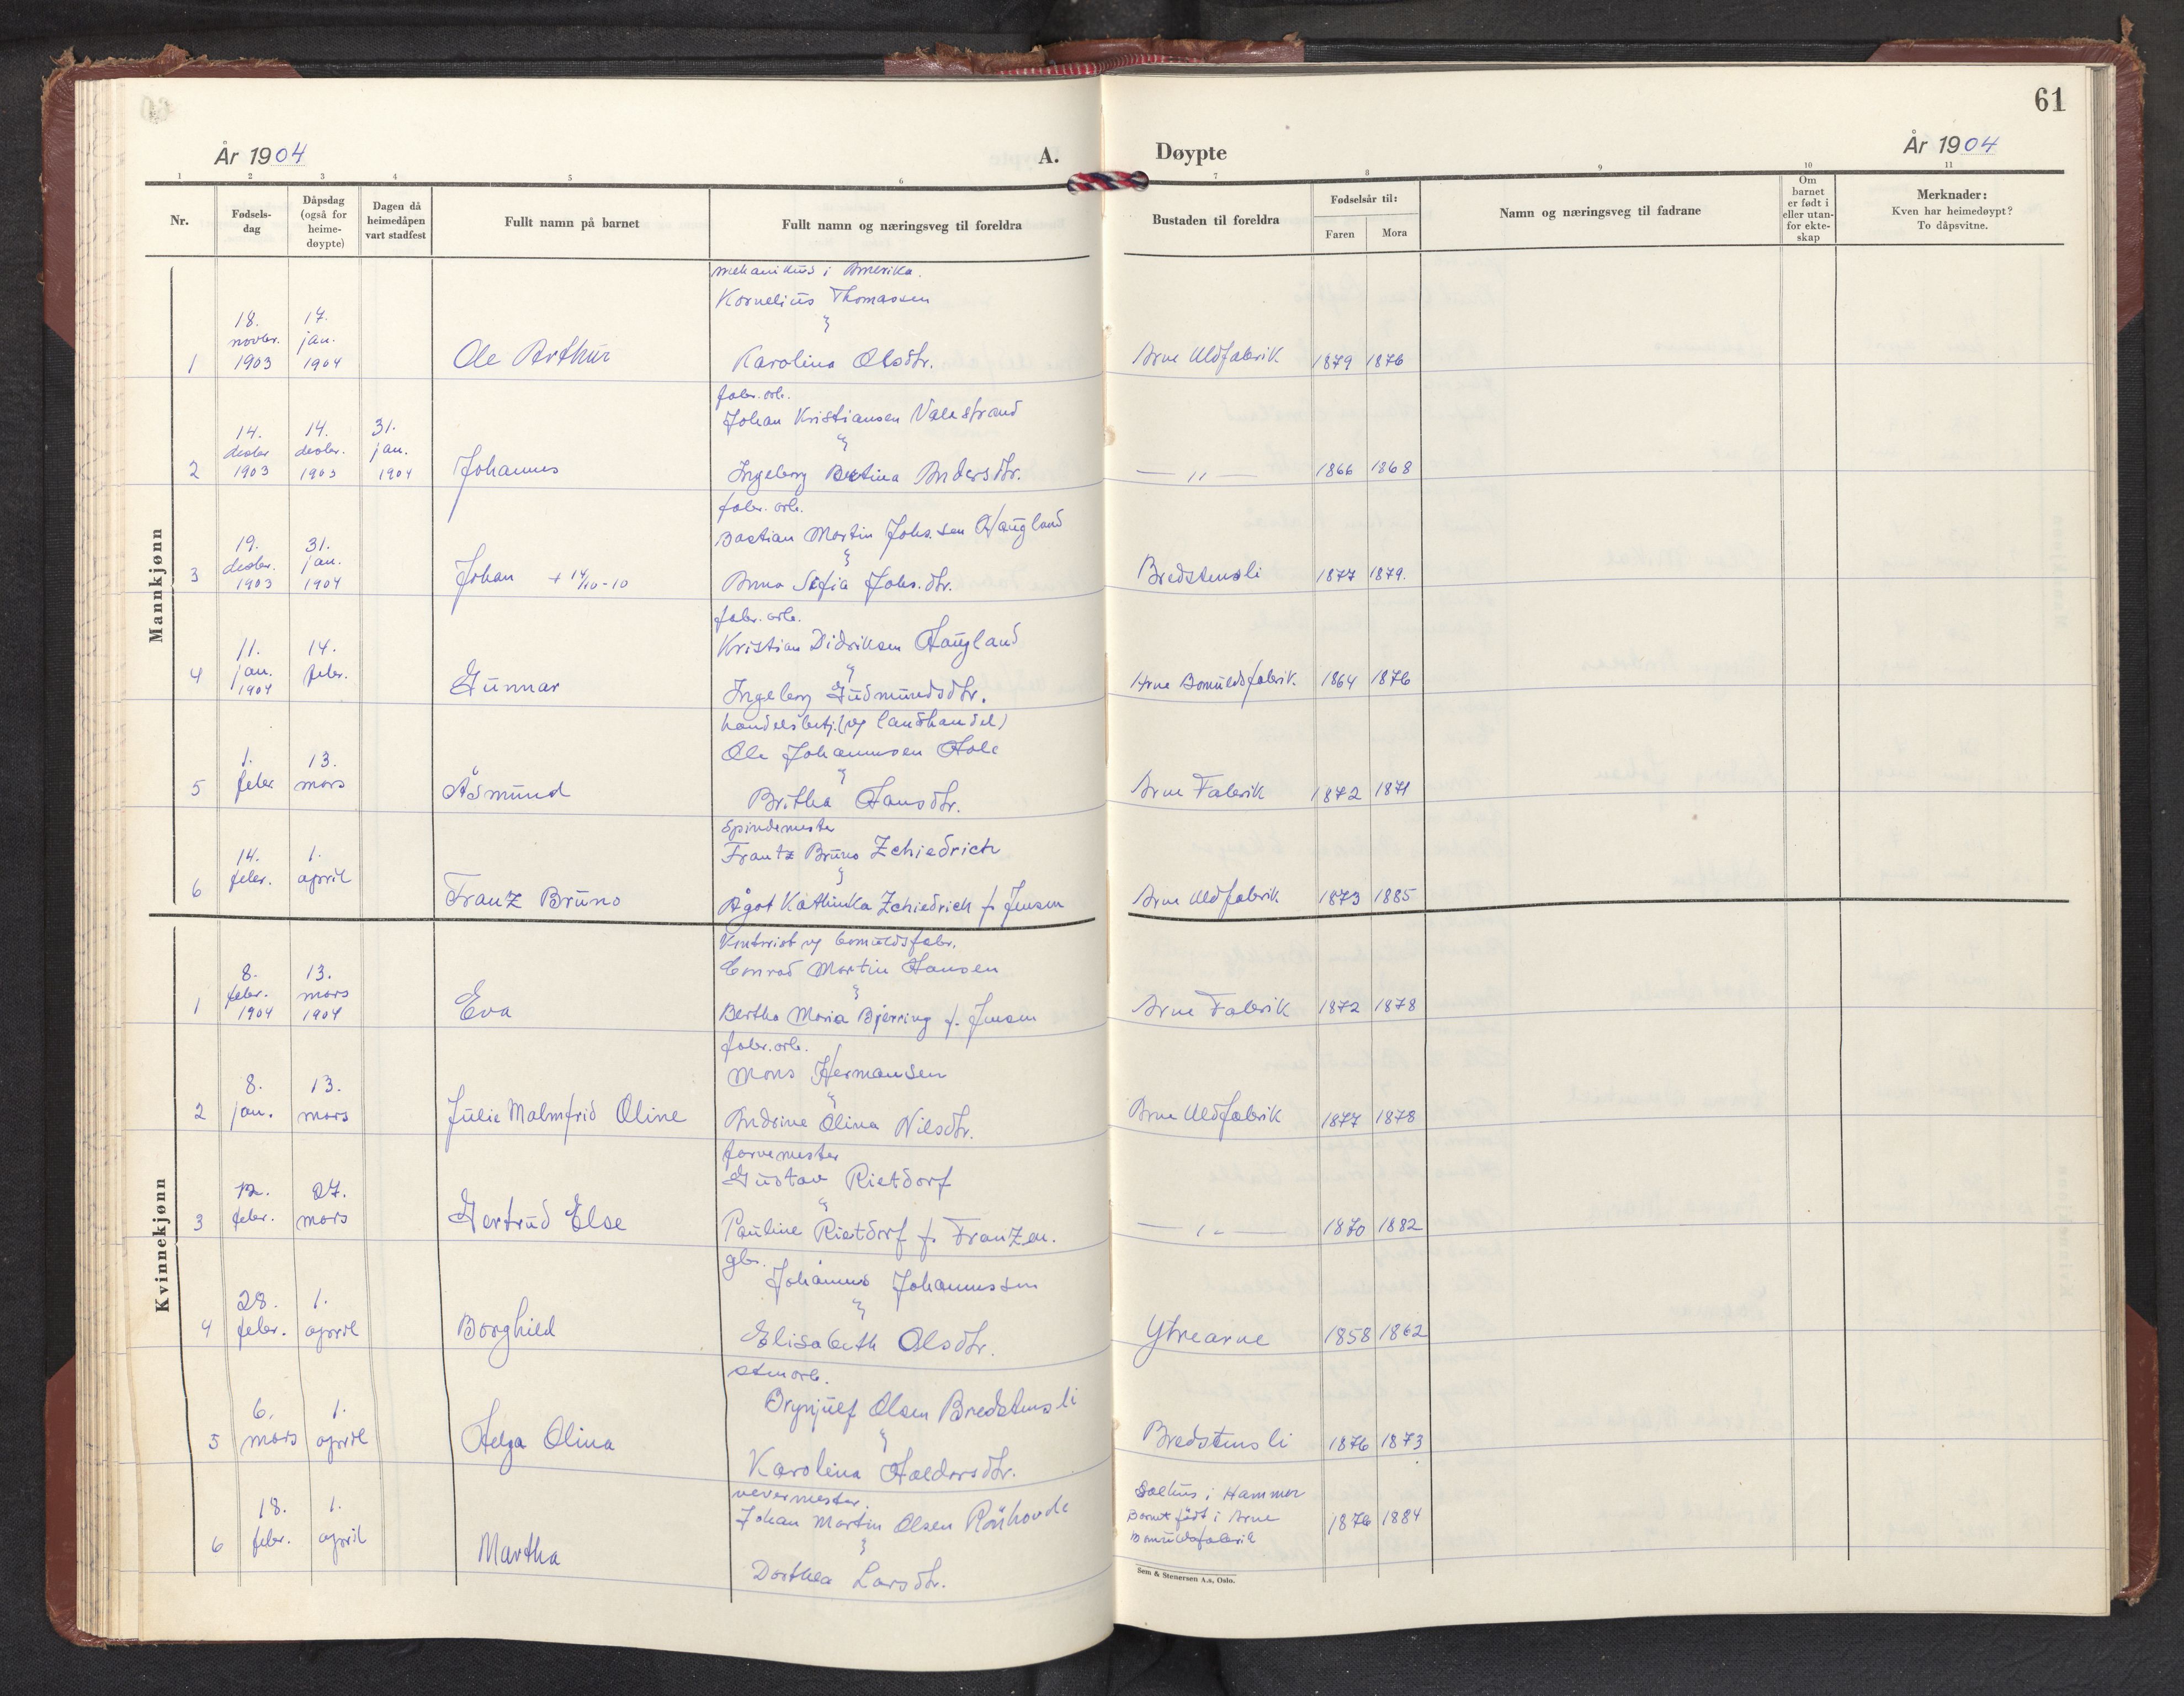 61
År 1904
A.
Døypte
År 1904
1 2 3 4 5 6 7 8 9 10 11
Nr.
Fødsels-
dag
Dåpsdag
(også for
heime-
døypte)
Dagen då
heimedåpen
vart stadfest
Fullt namn på barnet
Fullt namn og næringsveg til foreldra
Bustaden til foreldra
Fødselsår til:
Faren Mora
Namn og næringsveg til fadrane
Om
barnet
er født i
eller utan-
for ekte-
skap
Merknader:
Kven har heimedøypt?
To dåpsvitne.
Mannkjønn
mekanikus i Amerika.
Kornelius Thomassen
18. 17.
novbr. jan.
1 1903 1904 Ole Arthur Karolina Olsdtr. Arne Uldfabrik 1879 1876
fabr. arb.
Johan Kristiansen Valestrand
14. 14. 31.
desbr desbr. jan.
2 1903 1903 1904 Johannes Ingeborg Bertina Andersdtr. — " — 1866 1868
fabr. arb.
Bastian Martin Johs.sen Haugland
19. 31.
desbr. jan.
3 1903 1904 Johan + 14/10-10 Anna Sofia Johs.dtr. Bredstensli 1877 1879.
fabr. arb.
Kristian Didriksen Haugland
11. 14.
jan. febr.
4 1904 Gunnar Ingeborg Gudmundsdtr. Arne Bomuldsfabrik. 1864 1876
handelsbetj. (og landhandel)
Ole Johannesen Hole
1. 13.
5 febr mars Åsmund Britha Hansdtr. Arne Fabrik 1872 1871
Spindemester
Frantz Bruno Zchiedrich
14. 1.
febr. april
6 Franz Bruno Ågot Kathinka Zchiedrich f. Jensen Arne Uldfabrik 1873 1885
Kvinnekjønn
Kontorist og bomuldsfabr.
Conrad Martin Hansen
8. 13.
febr. mars
1 1904 1904 Eva Bertha Maria Bjerring f. Jensen Arne Fabrik 1872 1878
fabr. arb.
Mons Hermansen
8. 13.
2 jan. mars Julie Malmfrid Oline Andrine Olina Nilsdtr. Arne Uldfabrik 1877 1878
farvemester
Gustav Rietdorf
12. 27.
3 febr. mars Gertrud Else Pauline Rietdorf f. Franzen. — " — 1870 1882
gbr.
Johannes Johannessen
28. 1.
4 febr. april Borghild Elisabeth Olsdtr. Ytrearne 1858 1862
stenarb.
Brynjulf Olsen Bredstensli
6. 1.
5 mars april Helga Olina Karolina Haldorsdtr. Bredstensli 1876 1873
vevermester.
Johan Martin Olsen Rönhovde
18. 1.
6 febr. april Martha Dorthea Larsdtr. 1876 1884
Salhus i Hammer
Barnet født i Arne
Bomuldsfabrik
Sem & Stenersen A.s, Oslo.